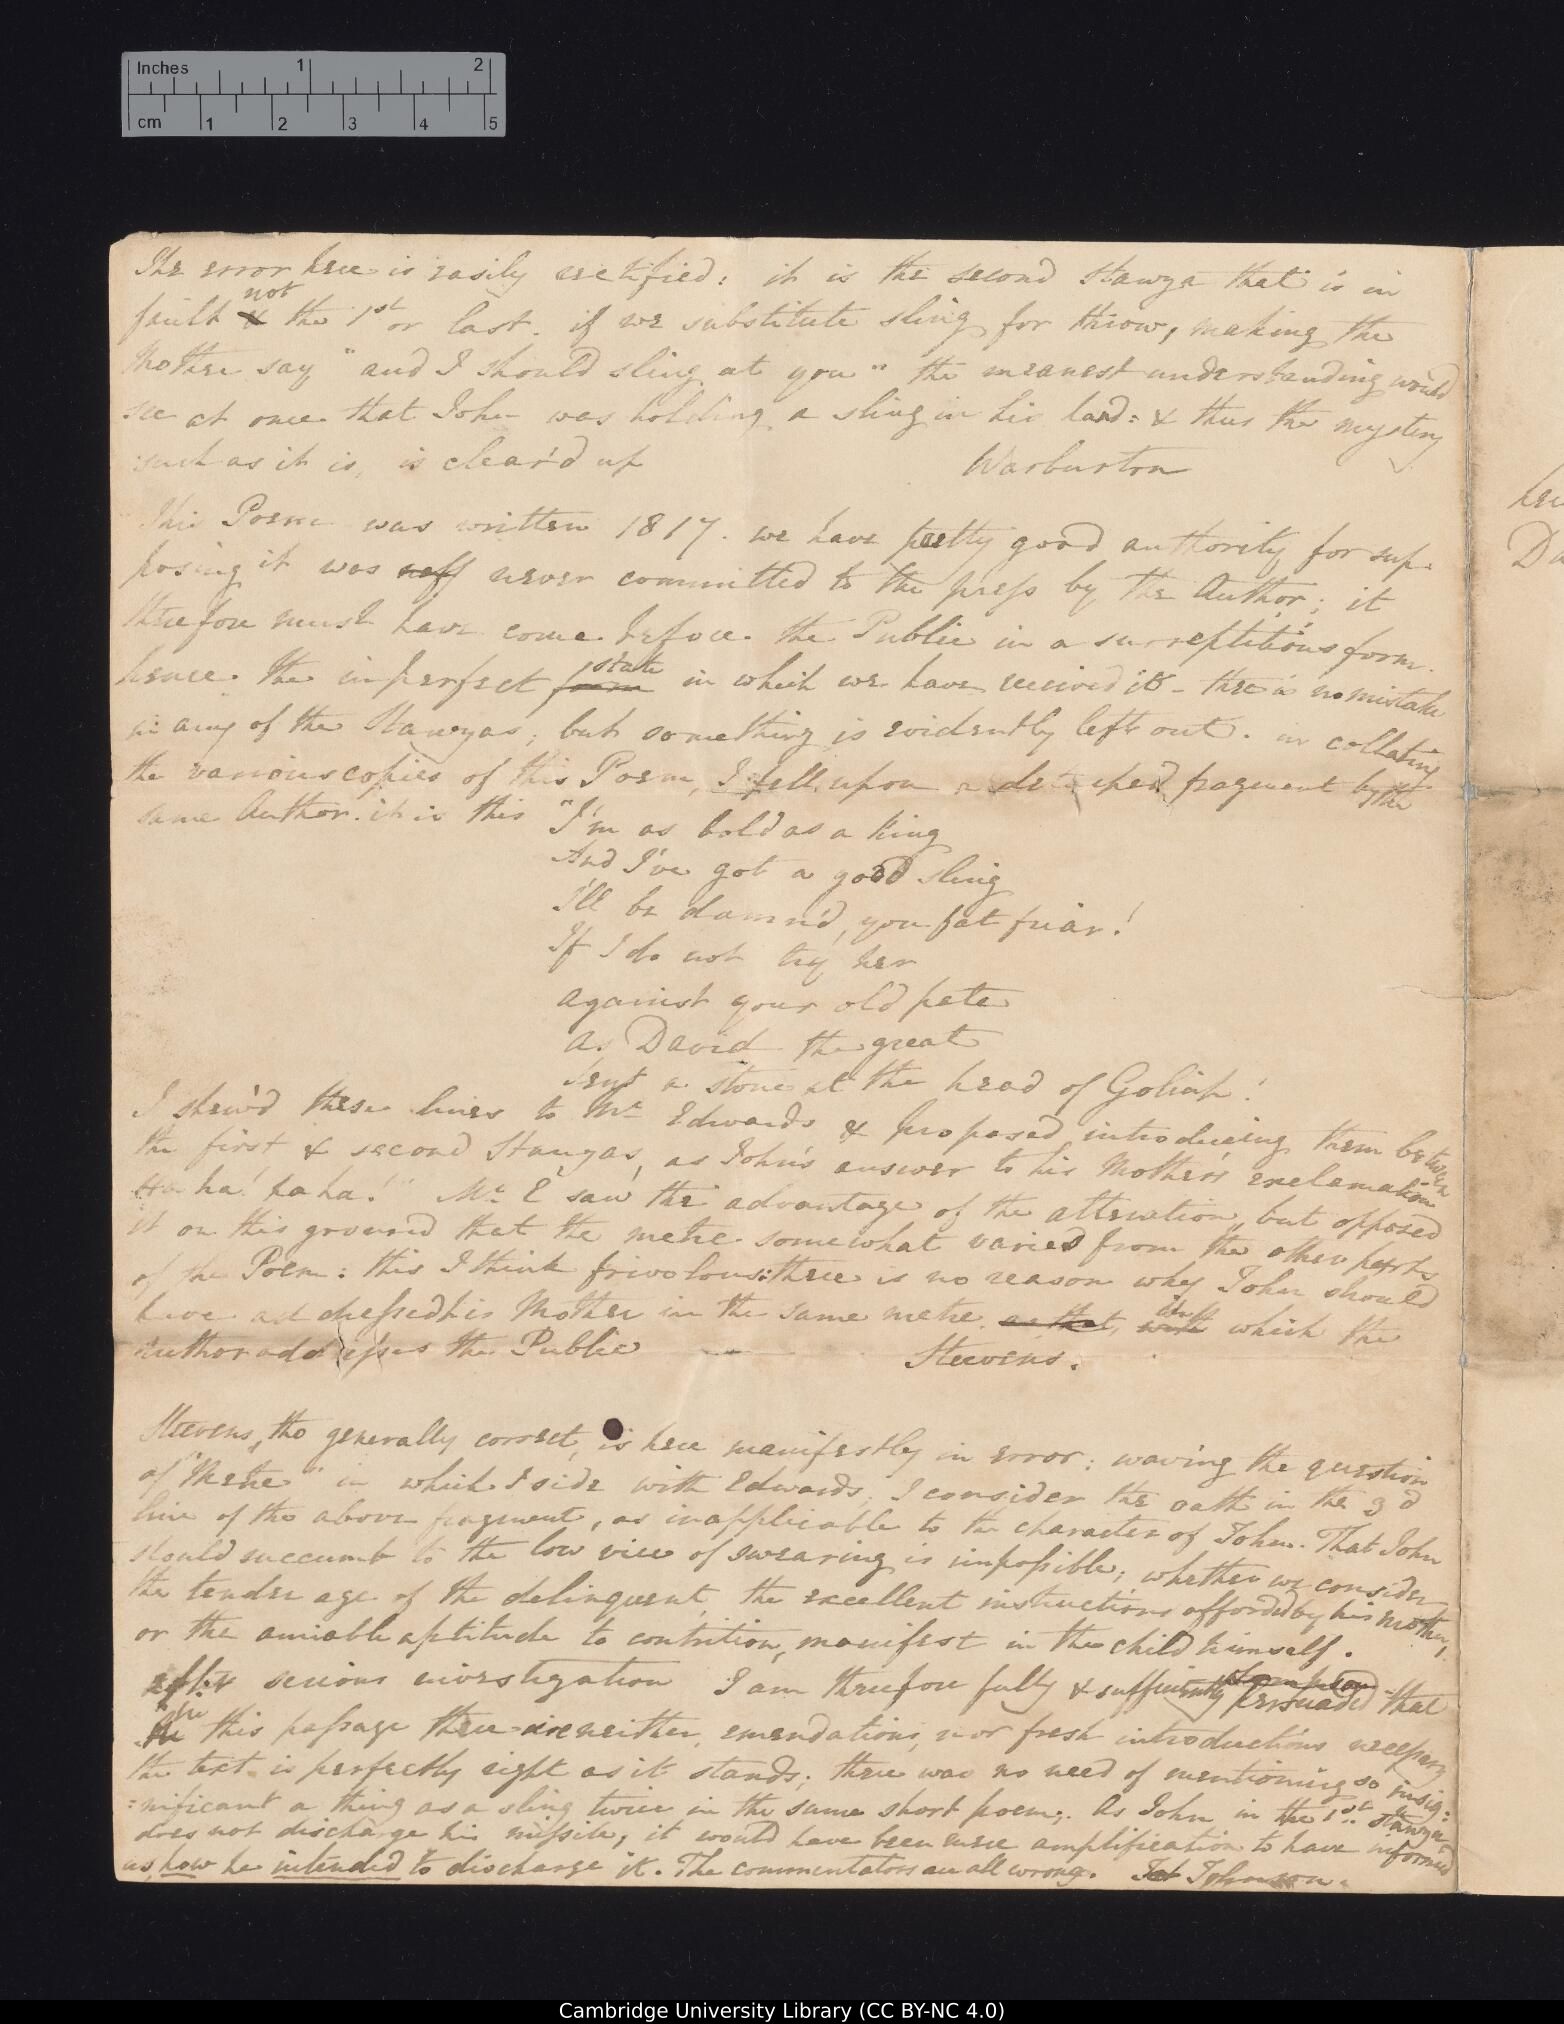 Inches 1 2
cm 1 2 3 4 5
The error here is easily rectified: it is the second Stanza that is in
not
fault & the 1st or last. if we substitute sling for throw, making the
Mother say "and I should sling at you" the meanest understanding would
see at once that John was holding a sling in his hand: & thus the mystery
such as it is, is clear'd up Warburton
This Poem was written 1817. we have pretty good authority for sup-
posing it was never committed to the press by the Author; it
therefore must have come before the Public in a surreptitious form.
state
hence the imperfect form in which we have received it - there is no mistake
in any of the Stanzas; but something is evidently left out. in collating
the various copies of this Poem, I fell upon a detached fragment by the
same Author. it is this "I'm as bold as a King
And I've got a good sling
I'll be damn'd, you fat friar!
If I do not try her
against your old pate
As David the great
Sent a stone at the head of Goliah!
I shew'd these lines to Mr Edwards & proposed introducing them between
the first & second Stanzas, as John's answer to his Mother's exclamation
Ha ha! ha ha!" Mr E saw the advantage of the alteration, but opposed
it on this ground that the metre somewhat varied from the other parts
of the Poem: this I think frivolous: there is no reason why John should
have addressed his Mother in the same metre as that, with which the
Author addresses the Public Steevens.
Steevens, tho generally correct, is here manifestly in error: waving the question
of "Metre" in which I side with Edwards, I consider the oath in the 3d
line of the above fragment, as inapplicable to the character of John. That John
should succumb to the low vice of swearing is impossible; whether we consider
the tender age of the delinquent, the excellent instructions afforded by his mother,
or the amiable aptitude to contrition, manifest in the child himself.
after serious investigation I am therefore fully & sufficiently persuaded that
in this passage there are neither emendations, nor fresh introductions necessary
the text is perfectly right as it stands; there was no need of mentioning so insig:
:nificant a thing as a sling twice in the same short poem;. As John in the 1st. Stanza
does not discharge his missile, it would have been mere amplification to have informed
us, how he intended to discharge it. The commentators are all wrong. Johnson.
her
Da
Cambridge University Library (CC BY-NC 4.0)